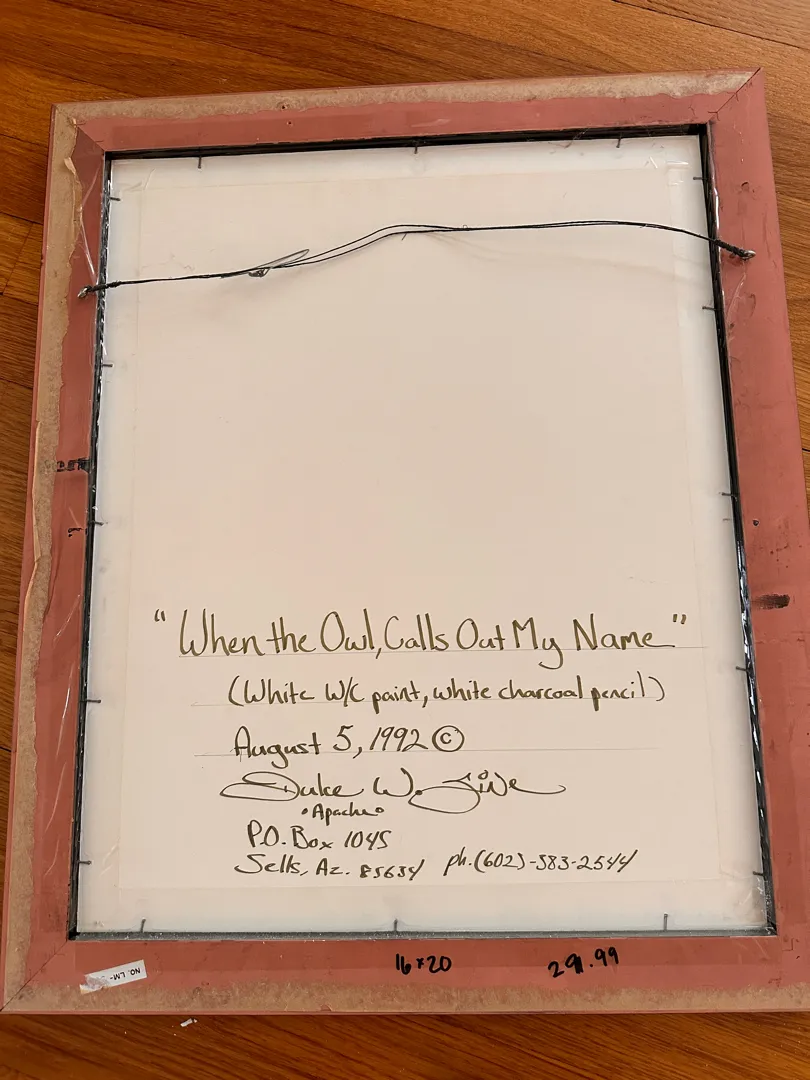 "When the Owl, Calls Out My Name"
(White W/C paint, white charcoal pencil)
August 5, 1992 ©
Duke W. Sine
•Apache•
P.O. Box 1045
Sells, Az. 85634 ph. (602)-383-2544
16x20
291.99
NO. LM-